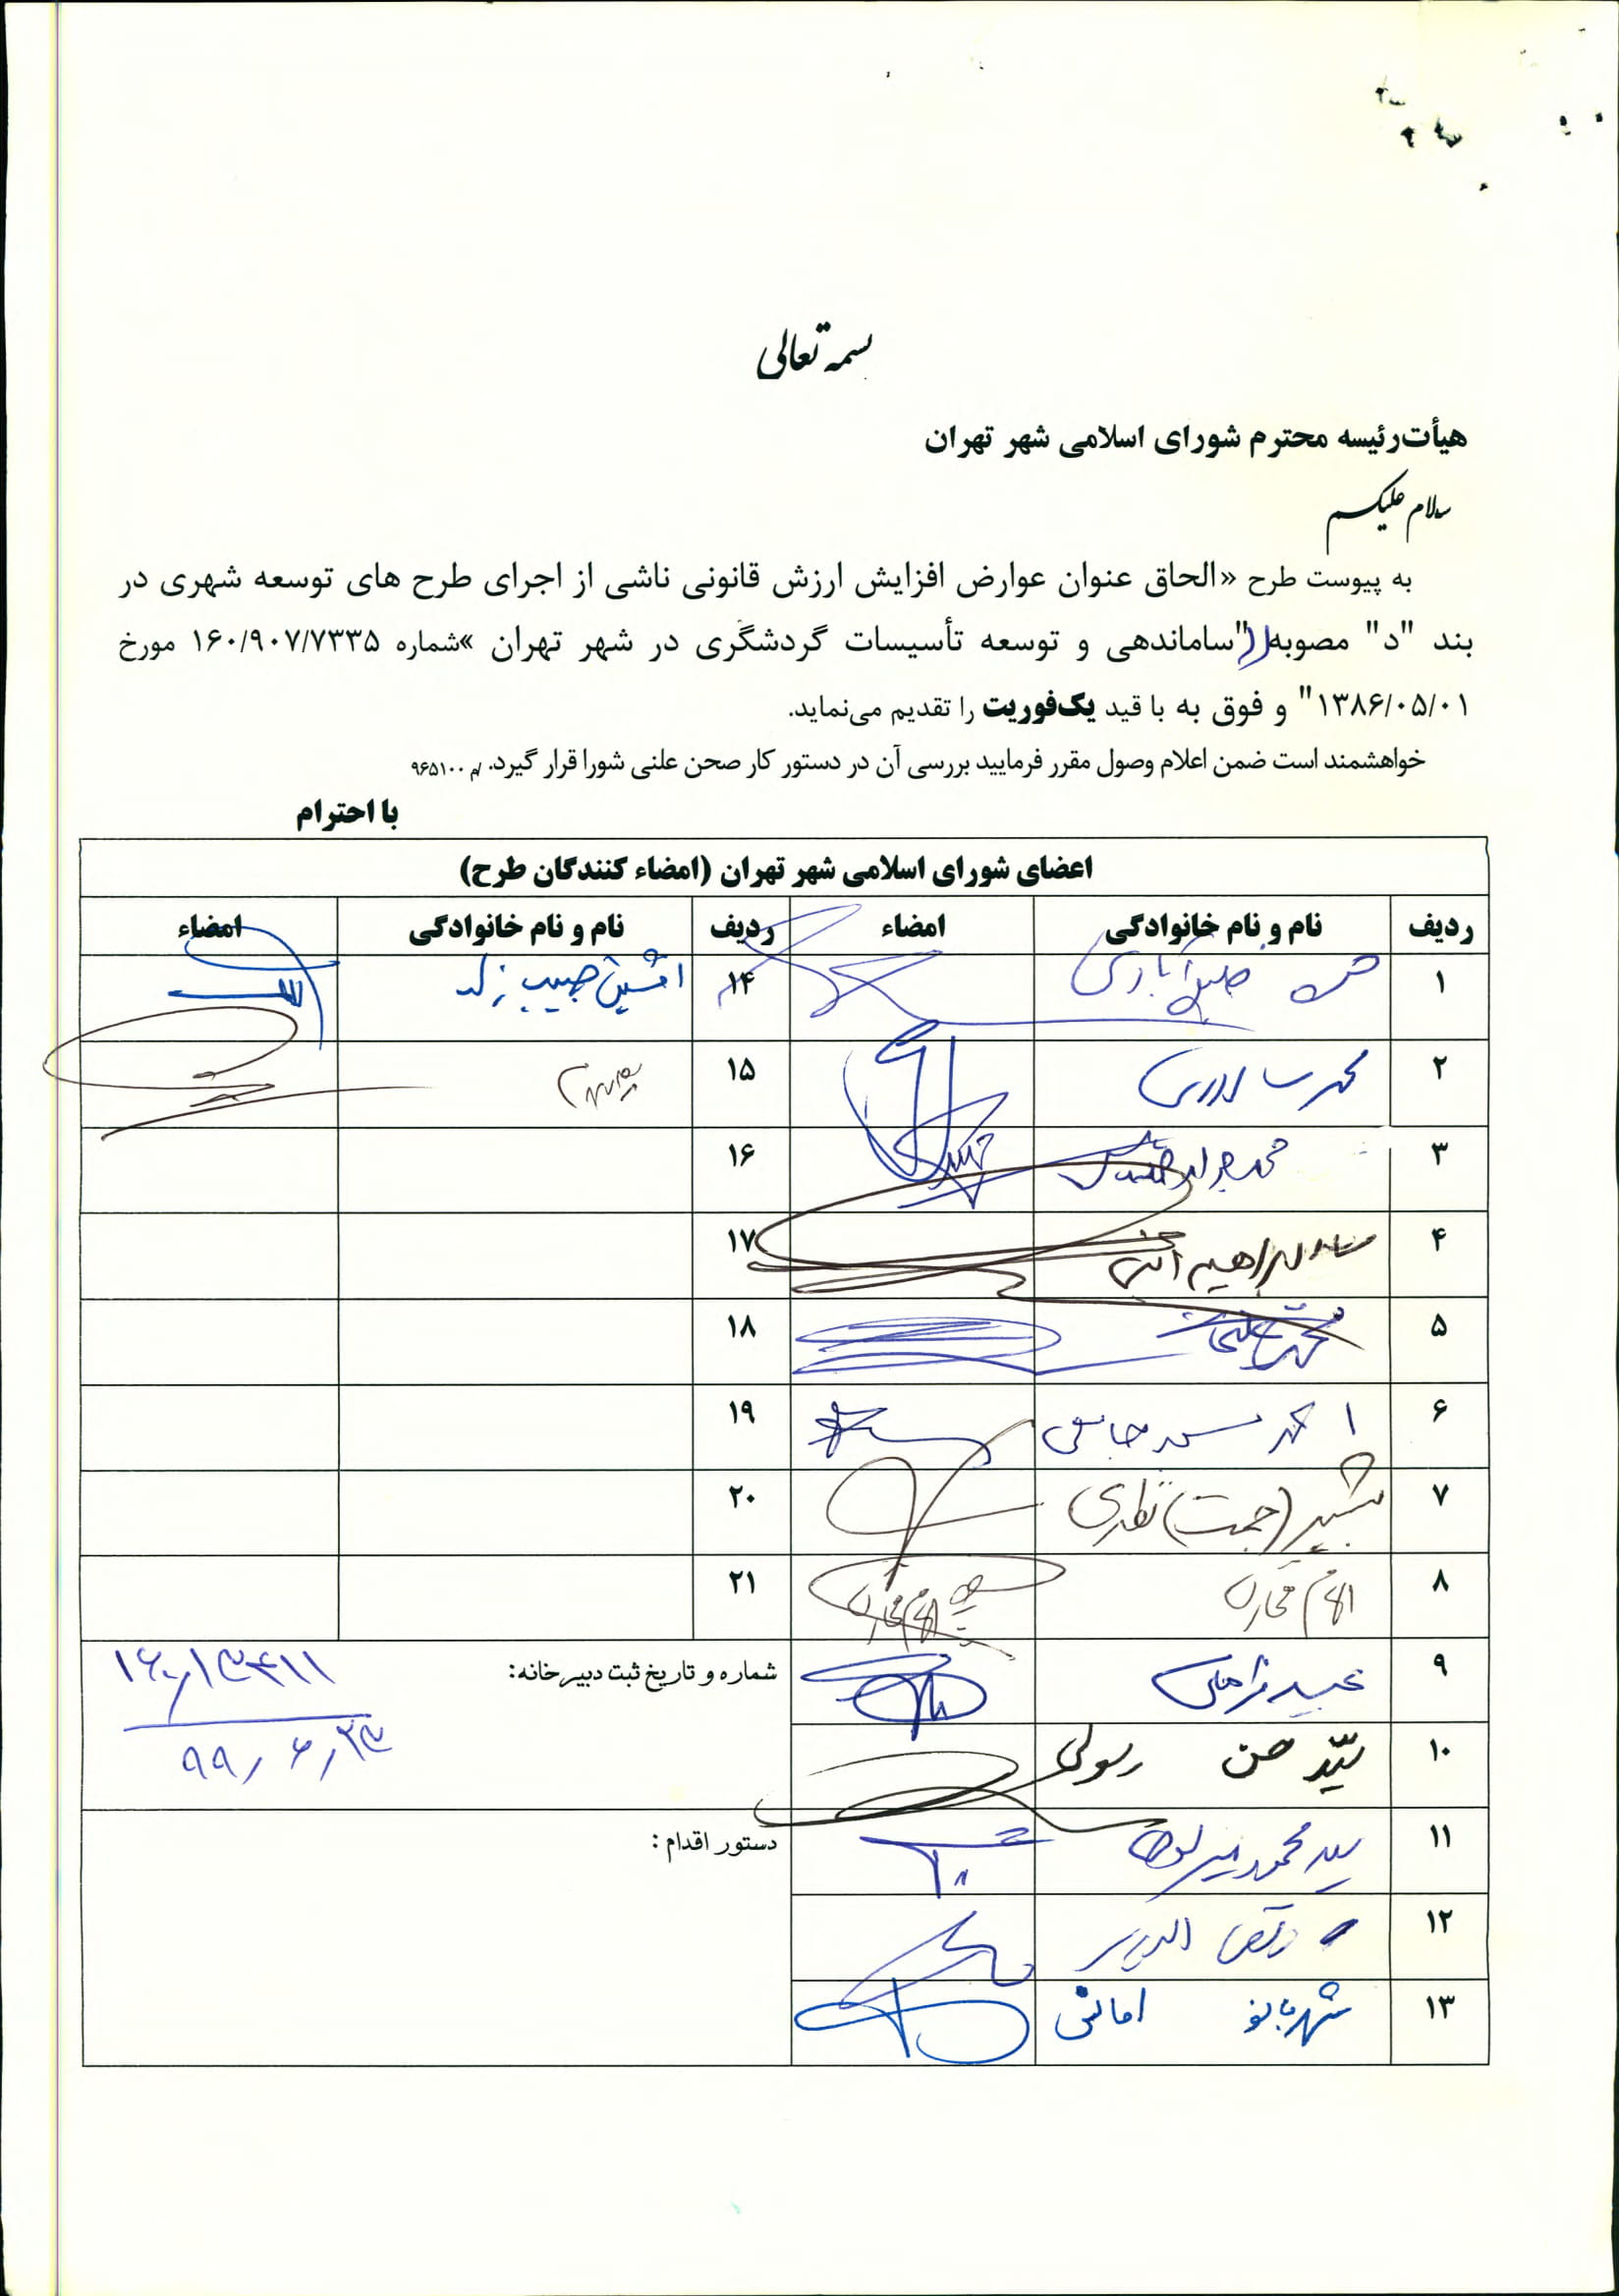 بسمه تعالی
هیأت‌رئیسه محترم شورای اسلامی شهر تهران
سلام علیکم
به پیوست طرح «الحاق عنوان عوارض افزایش ارزش قانونی ناشی از اجرای طرح های توسعه شهری در
بند "د" مصوبه "ساماندهی و توسعه تأسیسات گردشگری در شهر تهران »شماره ۱۶۰/۹۰۷/۷۳۳۵ مورخ
۱۳۸۶/۰۵/۰۱" و فوق به با قید یک‌فوریت را تقدیم می‌نماید.
خواهشمند است ضمن اعلام وصول مقرر فرمایید بررسی آن در دستور کار صحن علنی شورا قرار گیرد. /م ۹۶۵۱۰۰
با احترام
اعضای شورای اسلامی شهر تهران (امضاء کنندگان طرح)
ردیف نام و نام خانوادگی امضاء ردیف نام و نام خانوادگی امضاء
۱ خلیل‌آبادی ۱۴ افشین حبیب زاده
۲ محمد سالاری ۱۵
۳ محمد جواد حق شناس ۱۶
۴ سید ابراهیم امینی ۱۷
۵ محمد علیخانی ۱۸
۶ احمد مسجد جامعی ۱۹
۷ بشیر (حجت) نظری ۲۰
۸ الهام فخاری ۲۱
۹ مجید فراهانی شماره و تاریخ ثبت دبیرخانه: ۱۶۰/۱۳۴۱۱
۱۰ سید حسن رسولی ۹۹/۶/۲۳
۱۱ سید محمود میرلوحی دستور اقدام :
۱۲ مرتضی الویری
۱۳ شهربانو امانی